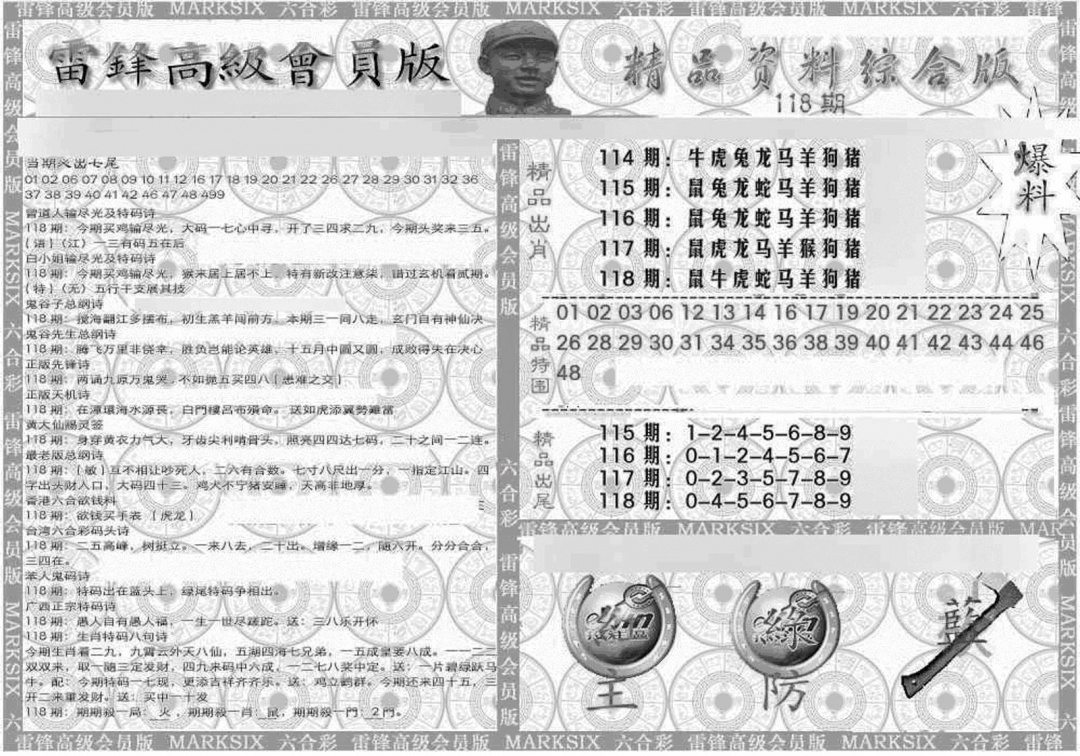 雷锋高级会员版 MARKSIX 六合彩 雷锋高级会员版 MARKSIX 六合彩 雷锋高级会员版 MARKSIX 六合彩
雷鋒高級會員版
精品資料綜合版
118期
爆料
当期
01 02 06 07 08 09 10 11 12 16 17 18 19 20 21 22 26 27 28 29 30 31 32 36
37 38 39 40 41 42 46 47 48 499
曾道人输尽光及特码诗
118期：今期买鸡输尽光，大码一七心中寻，开了三四求二九，今期头奖来三五。
{语}（江）一三有码五在后
白小姐输尽光及特码诗
118期：今期买鸡输尽光，猴来居上居不上，特有新改注意柒，错过玄机看贰期。
{特}（无）五行干支展其技
鬼谷子总纲诗
118期：搅海翻江多摆布，初生羔羊闯前方，本期三一同八走，玄门自有神仙决
鬼谷先生总纲诗
118期：腾飞万里非侥幸，胜负岂能论英雄，十五月中圆又圆，成败得失在决心
正版先锋诗
118期：两诵九原万鬼哭，不如抛五买四八{患难之交}
正版天机诗
118期：在漳環海水源長，白門樓呂布殞命。送如虎添翼勢難當
黄大仙赐灵签
118期：身穿黄衣力气大，牙齿尖利啃骨头，照亮四四达七码，二十之间一二连。
最老版总纲诗
118期：{敏}互不相让吵死人，二六有合数。七寸八尺出一分，一指定江山。四
字出头财入口，大码四十三。鸡犬不宁猪安睡，天高非地厚。
香港六合欲钱料
118期：欲钱买手表 {虎龙}
台湾六合彩码头诗
118期：二五高峰，树挺立。一来八去，二十出。增缘一二，随六开。分分合合，
三四在。
苯人鬼码诗
118期：特码出在蓝头上，绿尾特码争相出。
广西正宗特码诗
118期：愚人自有愚人福，一生一世尽蹉跎。送：三八乐开怀
118期：生肖特码八句诗
今期生肖看二九，九霄云外天八仙，五湖四海七兄弟，一五成皇要八成。一一二三
双双来，取一随三定发财，四九来码中六成，一二七八奖中定。送：一片碧绿跃马
牛。配：今期特码一七现，更添吉祥齐齐乐。送：鸡立鹤群。今期还来四十五，三
开二来車发财。送：买中一十发
118期：期期殺一局：火，期期殺一肖：鼠，期期殺一門：2門。
精品出肖
114期：牛虎兔龙马羊狗猪
115期：鼠兔龙蛇马羊狗猪
116期：鼠兔龙蛇马羊狗猪
117期：鼠虎龙马羊猴狗猪
118期：鼠牛虎蛇马羊狗猪
精品特围
01 02 03 06 12 13 14 16 17 19 20 21 22 23 24 25
26 28 29 30 31 34 35 36 38 39 40 41 42 43 44 46
48
精品出尾
115期：1-2-4-5-6-8-9
116期：0-1-2-4-5-6-7
117期：0-2-3-5-7-8-9
118期：0-4-5-6-7-8-9
雷锋高级会员版 MARKSIX 六合彩 雷锋高级会员版 MARKSIX
王
防
藍
雷锋高级会员版 MARKSIX 六合彩 雷锋高级会员版 MARKSIX 六合彩 雷锋高级会员版 MARKSIX 六合彩